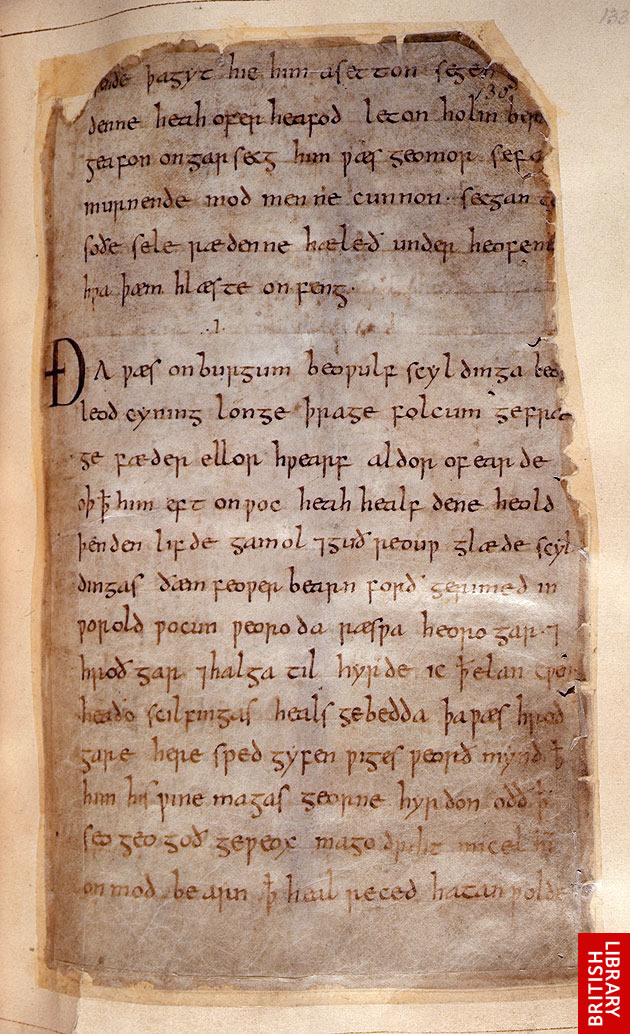 133
þagyt hie him asetton segen
130
denne heah ofer heafod leton holm ber
geafon ongarsecg him ƿæs geomor sefa
murnende mod men ne cunnon· secgan
soðe sele rædenne hæleð under heofenu
hƿa þæm hlæste onfeng·
.I.
ÐA ƿæs onburgum beoƿulf scyldinga leo
leod cyning longe þrage folcum gefræ
ge fæder ellor hƿearf aldor ofearde
oþ ꝥ him eft onƿoc heah healf dene heold
þenden lifde gamol ⁊guð reouƿ glæde scyl
dingas ðæm feoƿer bearn forð gerimed in
ƿorold ƿocun ƿeoroda ræsƿa heoro gar·⁊
hroð gar ⁊halga til hyrde ic ꝥ elan cƿen
heaðo scilfingas heals gebedda þaƿæs hroð
gare here sped gyfen ƿiges ƿeorð mynd ꝥ
him his ƿine magas georne hyrdon oðð ꝥ
seo geogoð geƿeox mago driht micel
onmod be arn ꝥ heal reced hatan ƿolde
BRITISH
LIBRARY